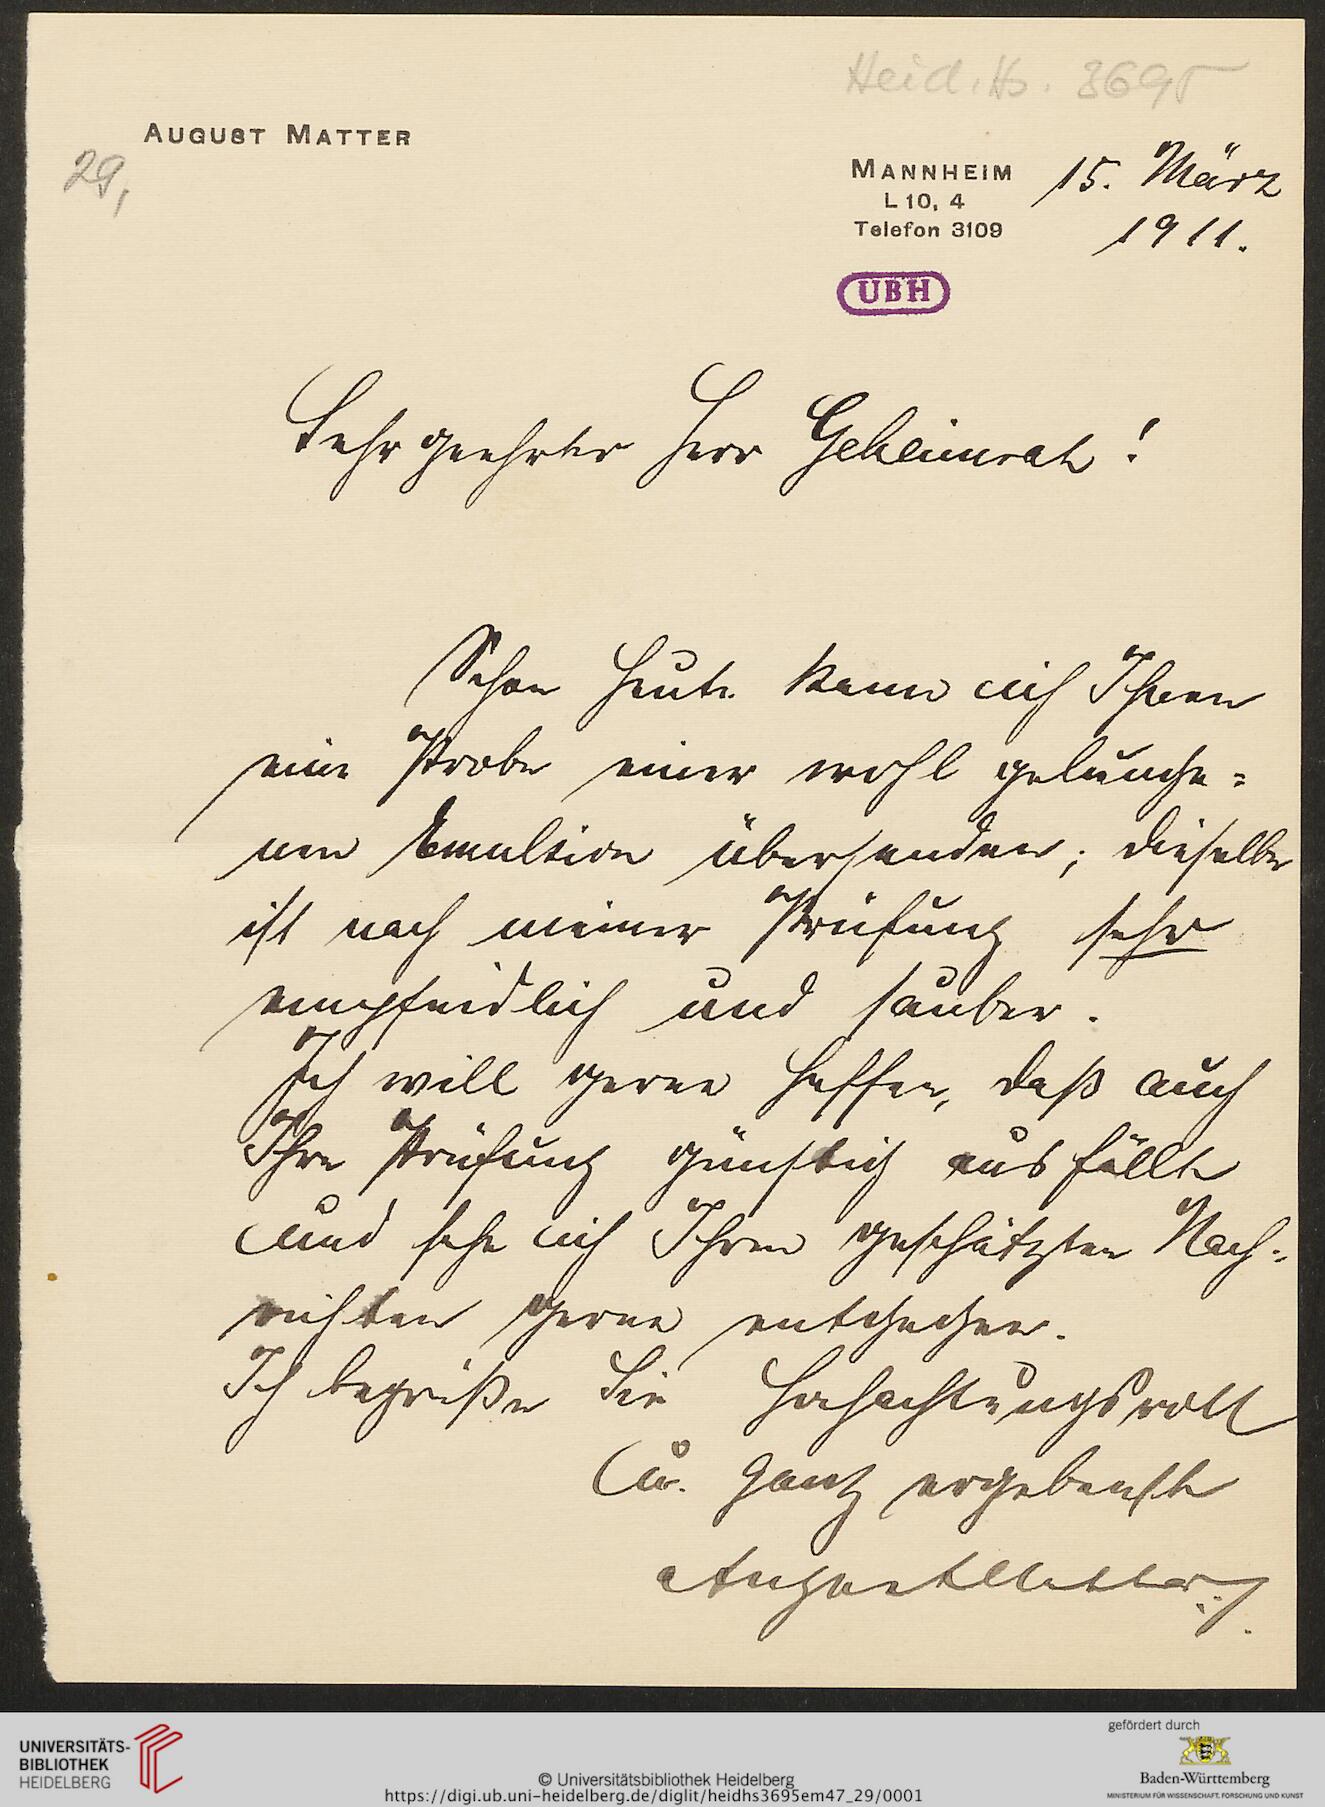 Heid. Hs. 3695
AUGUST MATTER
29,
MANNHEIM
L 10, 4
Telefon 3109
15. März
1911.
UBH
Sehr geehrter Herr Geheimrat!
Schon heute kann ich Ihnen
eine Probe einer wohl gelunge=
nen Emulsion übersenden; dieselbe
ist nach meiner Prüfung sehr
empfindlich und sauber.
Ich will gerne hoffen, daß auch
Ihre Prüfung günstig ausfällt
und sehe ich Ihren geschätzten Nach=
richten gerne entgegen.
Ich begrüße Sie hochachtungsvoll
u. ganz ergebenst
August Matter
UNIVERSITÄTS-
BIBLIOTHEK
HEIDELBERG
© Universitätsbibliothek Heidelberg
https://digi.ub.uni-heidelberg.de/diglit/heidhs3695em47_29/0001
gefördert durch
Baden-Württemberg
MINISTERIUM FÜR WISSENSCHAFT, FORSCHUNG UND KUNST